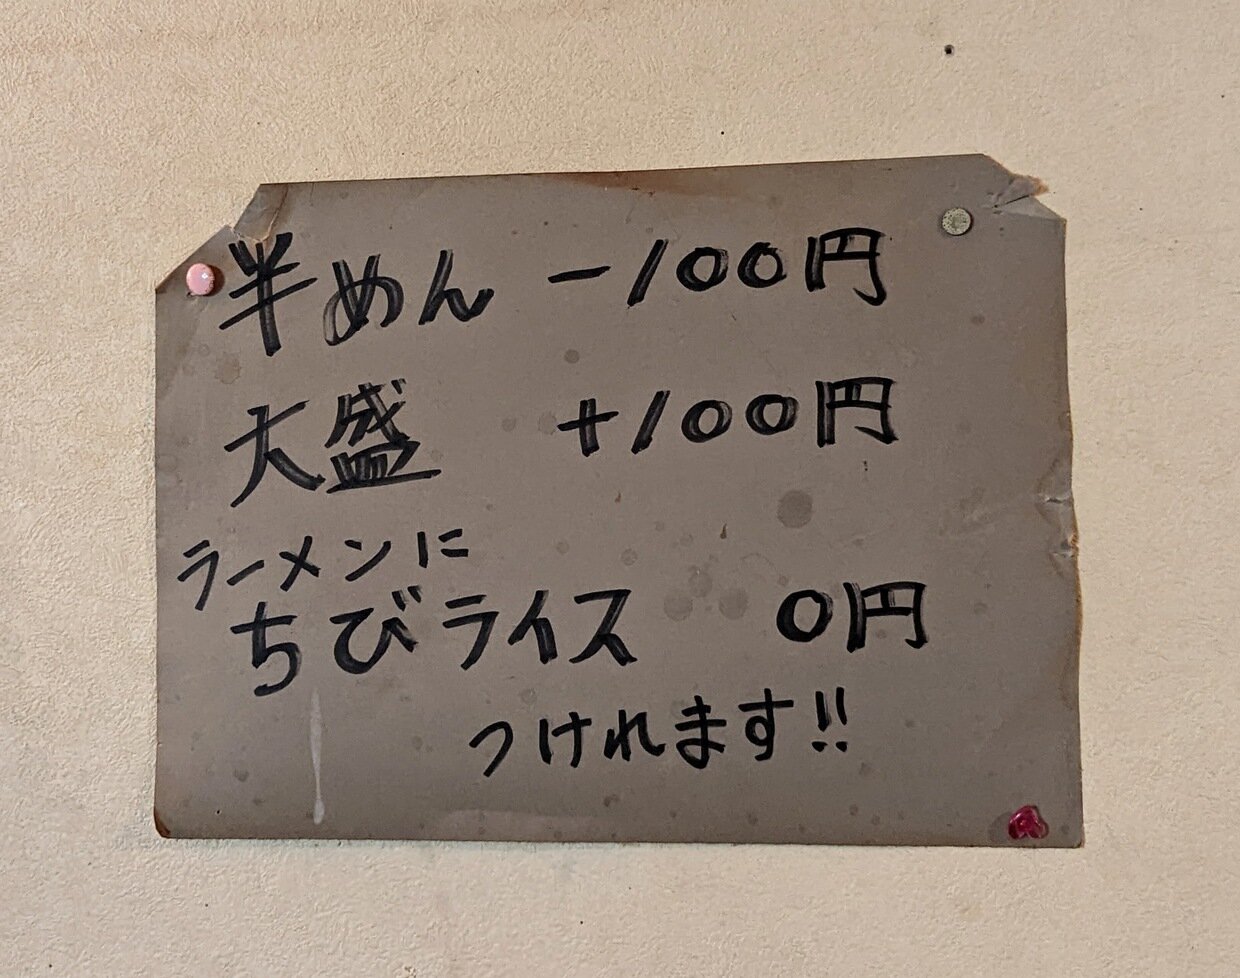 半めん －100円
大盛 +100円
ラーメンに
ちびライス 0円
つけれます!!